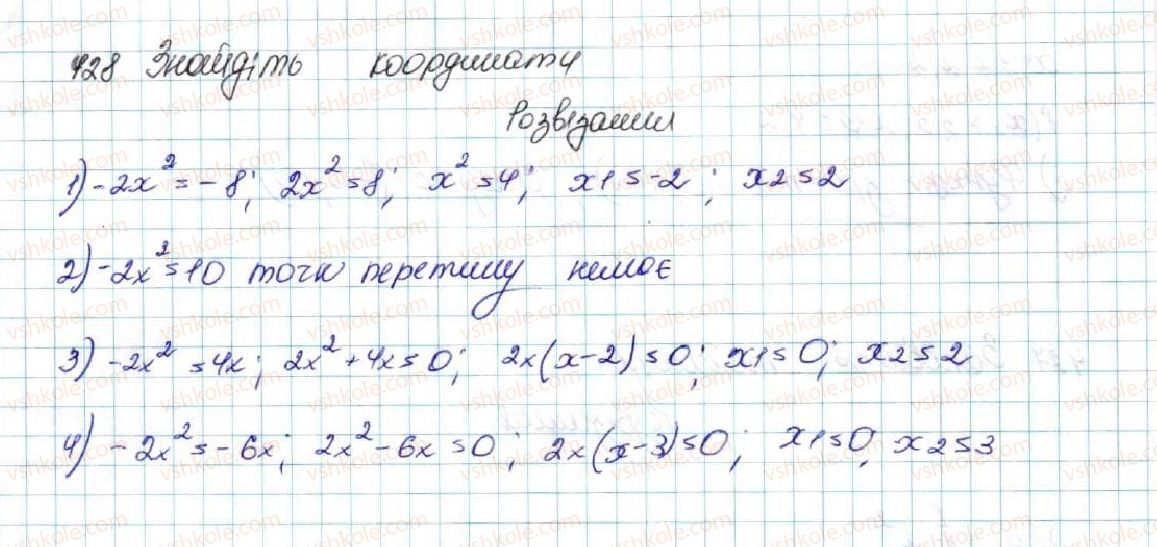 428 Знайдіть координати
Розвізання
1) -2x² = -8; 2x² = 8; x² = 4; x1 = -2; x2 = 2
2) -2x² = 10 точк перетину немає
3) -2x² = 4x; 2x² + 4x = 0; 2x(x-2) = 0; x1 = 0; x2 = 2
4) -2x² = -6x; 2x² - 6x = 0; 2x(x-3) = 0; x1 = 0, x2 = 3